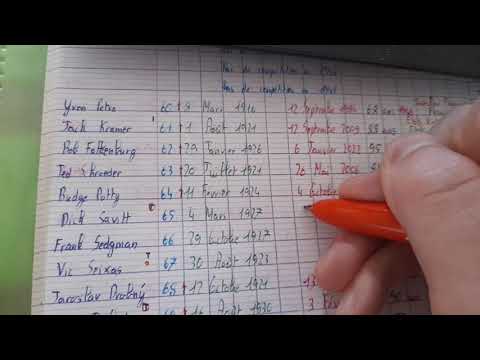 Pas de compétition en
Pas de compétition en
Yvon Petra 60 † 8 Mars 1916 12 Septembre 1984 68 ans
Jack Kramer 61 † 1 Août 1921 12 Septembre 2009 88 ans
Bob Falkenburg 62 † 29 Janvier 1926 6 Janvier 2022 95
Ted Schroeder 63 † 20 Juillet 1921 26 Mai 2006
Budge Patty 64 † 11 Février 1924 4 Octobre
Dick Savitt 65 4 Mars 1927
Frank Sedgman 66 29 Octobre 1927
Vic Seixas 67 30 Août 1923
Jaroslav Drobný 68 † 12 Octobre 1921 13
69 † 16 Août 1930 3 Fév